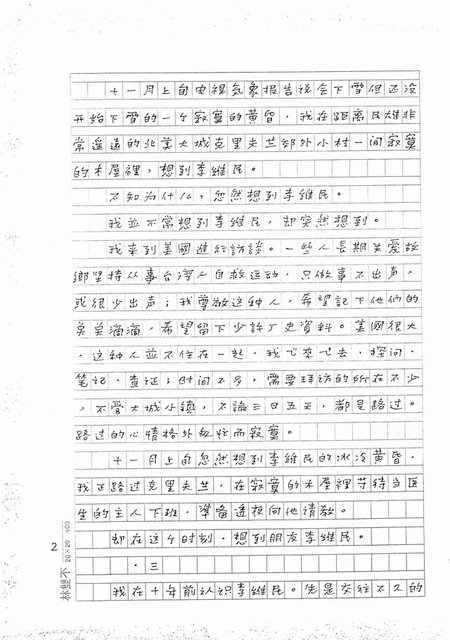 十一月上旬电視気象报告说会下雪但还没
开始下雪的一个寂寞的黄昏，我在距离民雄非
常遥遠的北美大城克里夫兰郊外小村一间寂寞
的木屋裡，想到李維民。
不知为什么，忽然想到李維民。
我並不常想到李維民，却突然想到。
我来到美國進行訪談。一些人長期关爱故
鄉坚持从事台湾人自救运动，只做事不出声，
或很少出声；我尊敬这种人，希望記下他们的
点点滴滴，希望留下少許历史資料。美國很大
，这种人並不住在一起，我飞来飞去，探问、
笔记、查証；时间不多，需要拜訪的所在不少
，不管大城小鎮，不論三日五天，都是路过。
路过的心情格外匆忙而寂寞。
十一月上旬忽然想到李維民的冰冷黄昏，
我正路过克里夫兰，在寂寞的木屋裡等待当医
生的主人下班，準备透夜向他请教。
却在这个时刻，想到朋友李維民。
·三
我在十年前认识李維民。先是交往不久的
2
林雙不
20×20 400